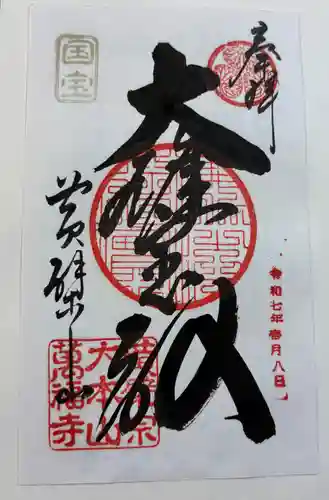 奉拝
国宝
大雄宝殿
黄檗山
令和七年壱月八日
黄檗宗
大本山
萬福寺